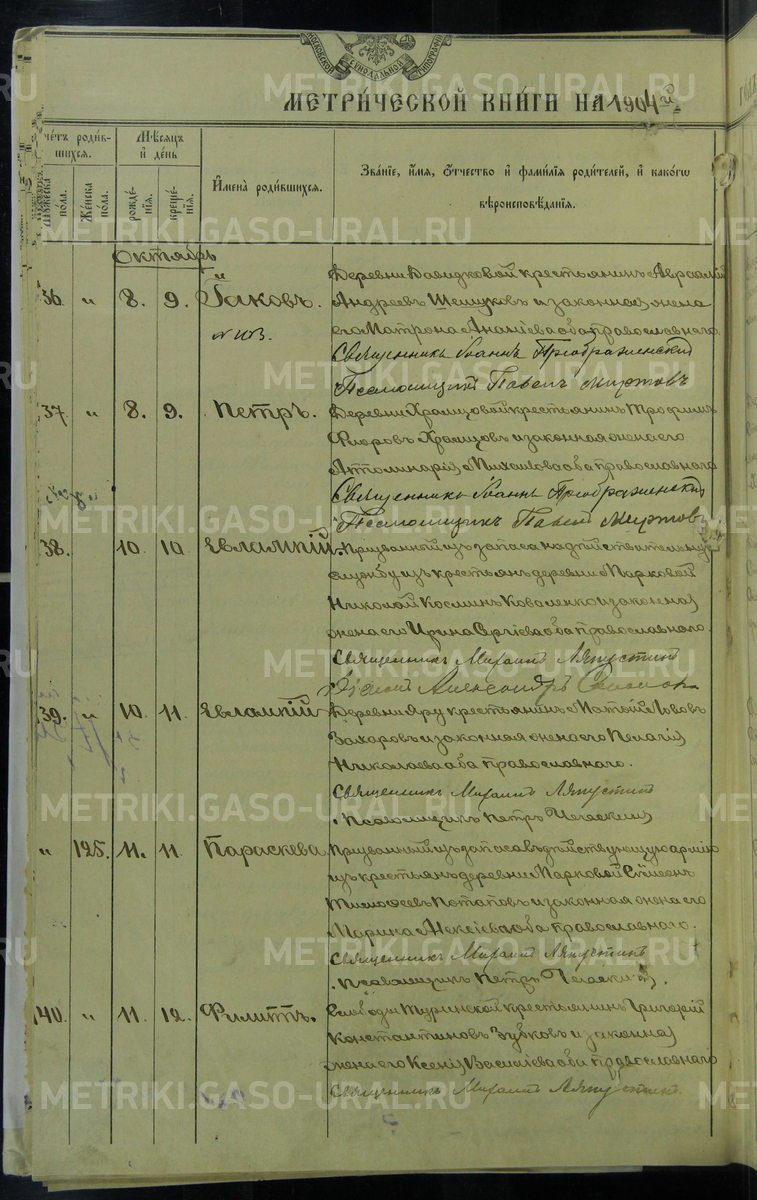 МОСКОВСКОЙ СѴНОДАЛЬНОЙ ТИПОГРАФІИ
МЕТРИ́ЧЕСКОЙ КНИ́ГИ НА 1904й
Сче́тъ роди́в-
шихся.
Мѣсяцъ
и҆ де́нь
Мꙋжеска
по́ла.
Же́нска
по́ла.
рожде́-
нїѧ.
креще́-
нїѧ.
И҆мена̀ роди́вшихсѧ.
Зва́нїе, и҆́мѧ, о҆́тчество и҆ фами́лїѧ роди́телей, и҆ како́гѡ
вѣроисповѣ́данїѧ.
Октябрь
36. „ 8. 9. Іаковъ.
Деревни Давидковой крестьянинъ Авраамій
Андреевъ Шешуковъ и законная жена
его Матрона Ананіева оба православнаго.
Священникъ Іоаннъ Преображенский
Псаломщикъ Павелъ Миртовъ
37. „ 8. 9. Петръ.
Деревни Храмцовой крестьянинъ Трофимъ
Флоровъ Храмцовъ и законная жена его
Аполинарія Михаилова оба православнаго
Священникъ Іоаннъ Преображенский
Псаломщикъ Павелъ Миртовъ
38. 10. 10. Евлампій.
Призванный изъ запаса на дѣйствительную
службу изъ крестьянъ деревни Марковой
Николай Косминъ Коваленко и законная
жена его Ирина Сергіева оба православнаго.
Священникъ Михаилъ Ляпустинъ
Діаконъ Александръ
39. „ 10. 11. Евлампій
Деревни Яру крестьянинъ Матѳій Львовъ
Захаровъ и законная жена его Пелагія
Николаева оба православнаго.
Священникъ Михаилъ Ляпустинъ
Псаломщикъ Петръ
„ 125. 11. 11. Параскева
Призванный изъ запаса въ дѣйствующую армію
изъ крестьянъ деревни Марковой Симеонъ
Тимоѳеевъ Потаповъ и законная жена его
Марина Алексіева оба православнаго.
Священникъ Михаилъ Ляпустинъ
Псаломщикъ Петръ
40. „ 11. 12. Филиппъ.
Слободы Туринской крестьянинъ Григорій
Константиновъ Зубковъ и законная
жена его Ксенія Василіева оба православнаго
Священникъ Михаилъ Ляпустинъ.
METRIKI.GASO-URAL.RU